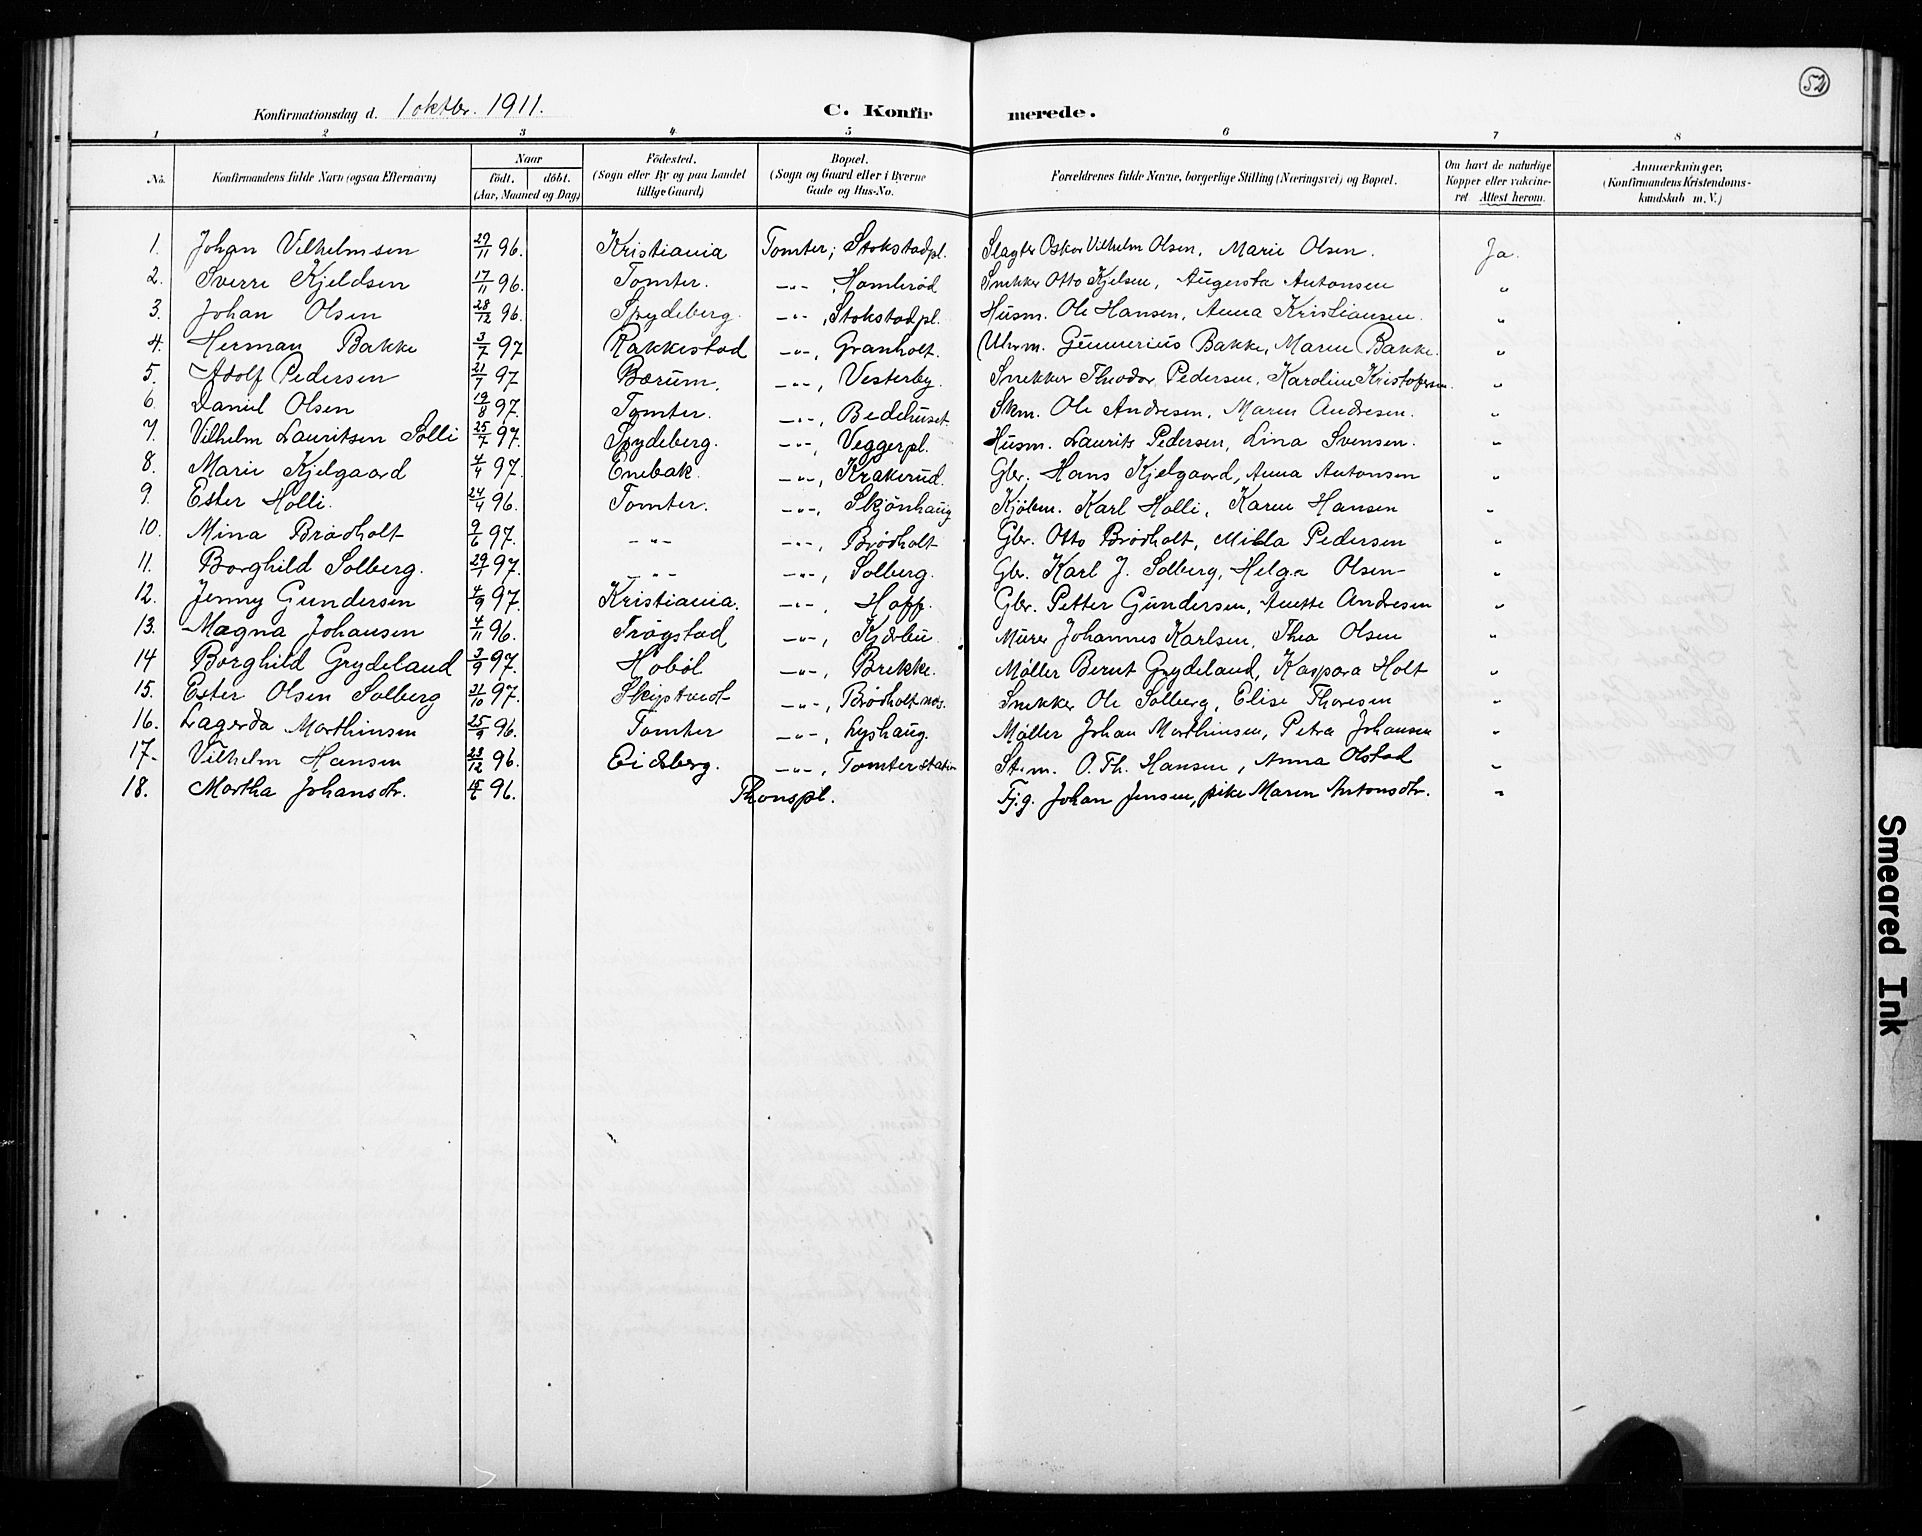 52
Konfirmationsdag d. 1 oktbr. 1911. C. Konfirmerede.
1 2 3 4 5 6 7 8
No. Konfirmandens fulde Navn (ogsaa Efternavn) Naar födt. döbt. (Aar, Maaned og Dag) Födested. (Sogn eller By og paa Landet tillige Gaard) Bopæl. (Sogn og Gaard eller i Byerne Gade og Hus-No. Forældrenes fulde Navne, borgerlige Stilling (Næringsvei) og Bopæl. Om havt de naturlige Kopper eller vakcineret Attest herom. Anmærkninger, (Konfirmandens Kristendomskundskab m. V.)
1. Johan Vilhelmsen 29/11 96. Kristiania Tomter; Stokstadpl. Slagter Oskar Vilhelm Olsen, Marie Olsen. Ja.
2. Sverre Kjeldsen 17/11 96. Tomter. -"-, Hamlerød Snekker Otto Kjelsen, Augusta Antonsen "
3. Johan Olsen 28/12 96. Spydeberg. -"-, Stokstadpl. Husm. Ole Hansen, Anna Kristiansen. "
4. Herman Bakke 3/7 97 Rakkestad -"-, Granholt. Uhrm. Gunnerius Bakke, Maren Bakke. "
5. Adolf Pedersen 21/7 97 Bærum. -"-, Vesterby. Snekker Theodor Pedersen, Karoline Kristofersen "
6. Daniel Olsen 19/8 97. Tomter. -"-, Bedehuset. Skm. Ole Andresen, Maren Andresen. "
7. Vilhelm Lauritsen Solli 25/7 97. Spydeberg. -"-, Veggerpl. Husm. Laurits Pedersen, Lina Svensen. "
8. Marie Kjelgaard 4/4 97. Enebak. -"-, Krakerud. Gbr. Hans Kjelgaard, Anna Antonsen "
9. Ester Holli. 24/4 96. Tomter. -"-, Skjönhaug Kjøbm. Karl Holli, Karen Hansen "
10. Mina Brødholt 9/6 97. -"- -"-, Brödholt Gbr. Otto Brödholt, Milla Pedersen "
11. Borghild Solberg. 29/1 97. -"- -"-, Solberg. Gbr. Karl J. Solberg, Helga Olsen "
12. Jenny Gundersen 4/9 97. Kristiania. -"-, Hoff. Gbr. Petter Gundersen, Anette Andresen "
13. Magna Johansen 4/11 96. Trøgstad -"-, Kjærbu Murer Johannes Karlsen, Thea Olsen "
14 Borghild Grydeland 3/9 97. Hobøl -"-, Brekke. Møller Bernt Grydeland, Kaspara Holt "
15. Ester Olsen Solberg 31/10 97. Skiptvedt -"-, Brødholt Snekker Ole Solberg, Elise Thoresen "
16. Lagerda Marthinsen 25/9 96. Tomter -"-, Lyshaug. Møller Johan Marthinsen, Petra Johansen "
17. Vilhelm Hansen 23/12 96. Eidsberg. -"-, Tomter station St.m. O. Th. Hansen, Anna Olstad "
18. Martha Johansdtr. 96. Thonspl. Fj.g. Johan Jensen, pike Maren Antonsdtr. "
Smeared Ink